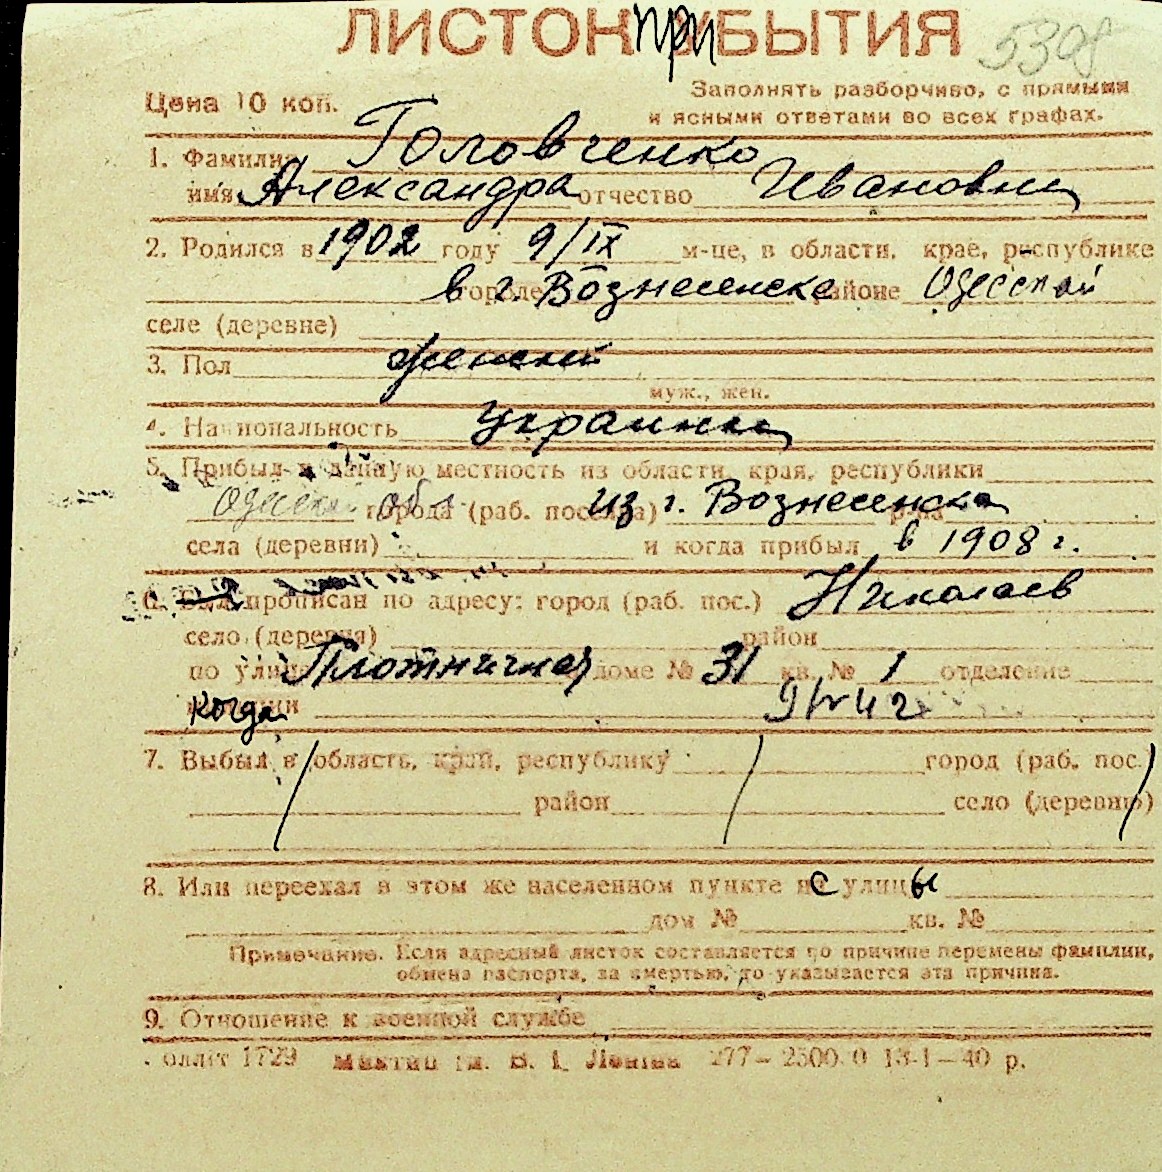 ЛИСТОК ПРИБЫТИЯ 5398
Цена 10 коп.
Заполнять разборчиво, с прямыми
и ясными ответами во всех графах.
1. Фамилия Головченко
имя Александра отчество Ивановна
2. Родился в 1902 году 9/IX м-це, в области, крае, республике
в г. Вознесенске районе Одесской
селе (деревне)
3. Пол женский
муж., жен.
4. Национальность Украинка
5. Прибыл в данную местность из области, края, республики
Одесской обл. города (раб. поселка) из г. Вознесенска
села (деревни) и когда прибыл в 1908 г.
6. Был прописан по адресу: город (раб. пос.) Николаев
село (деревня) район
по улице Плотничная доме № 31 кв. № 1 отделение
когда
7. Выбыл в область, край, республику город (раб. пос.)
район село (деревню)
8. Или переехал в этом же населенном пункте с улицы
дом № кв. №
Примечание. Если адресный листок составляется по причине перемены фамилии,
обмена паспорта, за смертью, то указывается эта причина.
9. Отношение к военной службе
оллит 1729 им. В. И. Ленина 277— 2500.0 13-1—40 р.